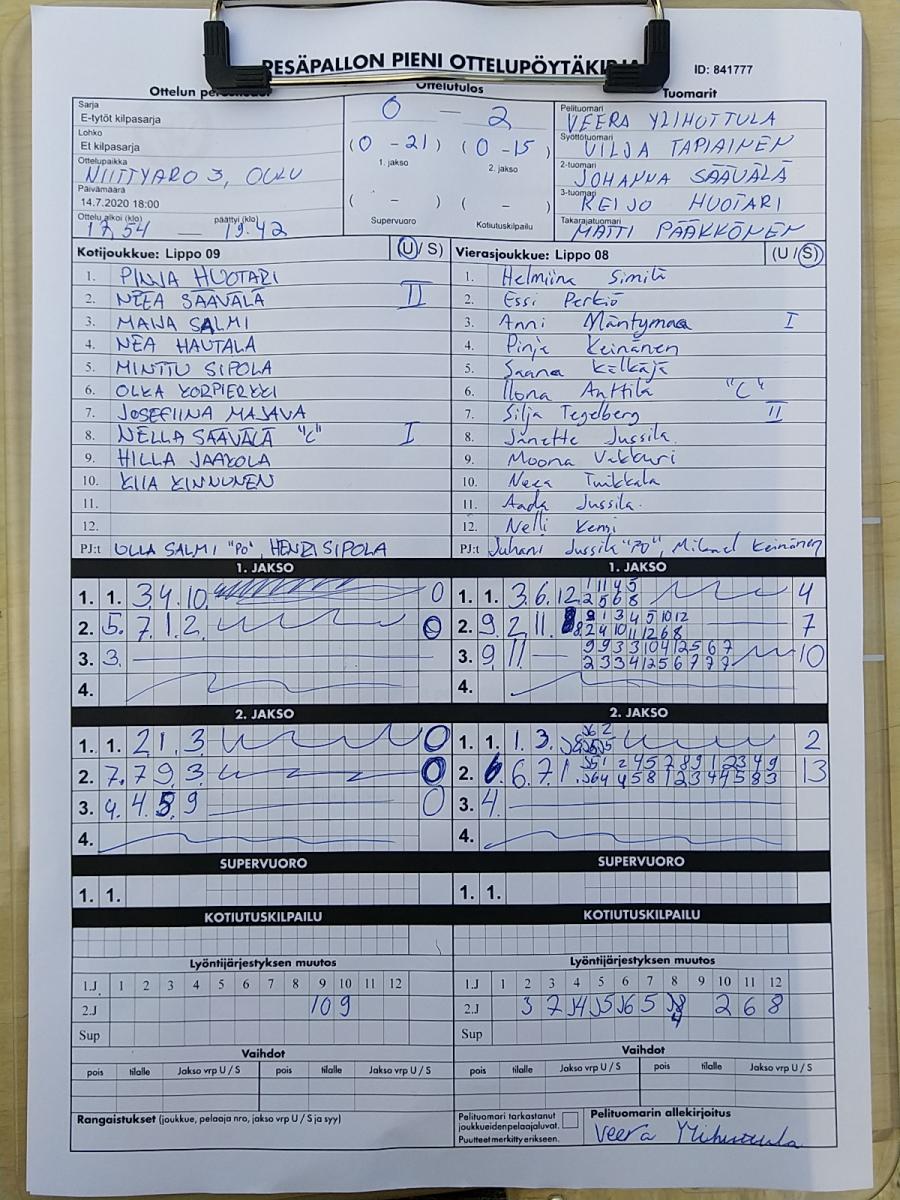 PESÄPALLON PIENI OTTELUPÖYTÄKIRJA
ID: 841777
Ottelun
Ottelutulos
Tuomarit
Sarja
E-tytöt kilpasarja
Lohko
Et kilpasarja
Ottelupaikka
NIITTYARO 3, OULU
Päivämäärä
14.7.2020 18:00
Ottelu alkoi (klo) päättyi (klo)
17.54 — 19.42
0 — 2
(0 - 21) (0 - 15)
1. jakso 2. jakso
( - ) ( - )
Supervuoro Kotiutuskilpailu
Pelituomari
VEERA YLIHUTTULA
Syöttötuomari
VILJA TAPIAINEN
2-tuomari
JOHANNA SÄÄVÄLÄ
3-tuomari
REIJO HUOTARI
Takarajatuomari
MATTI PÄÄKKÖNEN
Kotijoukkue: Lippo 09 (U / S)
1. PINJA HUOTARI
2. NEEA SÄÄVÄLÄ II
3. MAIJA SALMI
4. NEA HAUTALA
5. MINTTU SIPOLA
6. OLKA KORPIERKKI
7. JOSEFIINA MAJAVA
8. NELLA SÄÄVÄLÄ "C" I
9. HILLA JAAKOLA
10. KIIA KINNUNEN
11.
12.
PJ:t ULLA SALMI "PO", HENRI SIPOLA
Vierasjoukkue: Lippo 08 (U / S)
1. Helmiina Similä
2. Essi Perkiö
3. Anni Mäntymaa I
4. Pinja Keinänen
5. Saana Kälkäjä
6. Ilona Anttila "C"
7. Silja Tegelberg II
8. Janette Jussila
9. Moona Vakkuri
10. Neea Tuikkala
11. Aada Jussila
12. Nelli Kemi
PJ:t Juhani Jussila "PO", Mikael Keinänen
1. JAKSO
1. 1. 3. 4. 10. 0
2. 5. 7. 1. 2. 0
3. 3.
4.
1. JAKSO
1. 1. 3. 6. 12. 1 11 4 5 4
2 5 6 8
2. 9. 2. 11. 8 9 1 3 4 5 10 12 7
8 2 4 10 11 12 6 8
3. 9. 11 9 9 3 3 10 4 12 5 6 7 10
2 3 3 4 12 5 6 7 7 7
4.
2. JAKSO
1. 1. 2 1. 3 0
2. 7. 7 9 3 0
3. 4. 4 5 9 0
4.
2. JAKSO
1. 1. 1. 3. 2
2. 6. 6. 7. 1. J5 1 2 4 5 7 8 9 1 2 3 4 9 13
J6 4 4 5 8 1 2 3 4 4 5 8 3
3. 4.
4.
SUPERVUORO
1. 1.
SUPERVUORO
1. 1.
KOTIUTUSKILPAILU
KOTIUTUSKILPAILU
Lyöntijärjestyksen muutos
1.J 1 2 3 4 5 6 7 8 9 10 11 12
2.J 10 9
Sup
Lyöntijärjestyksen muutos
1.J 1 2 3 4 5 6 7 8 9 10 11 12
2.J 3 7 J4 J5 J6 5 J8 2 6 8
4
Sup
Vaihdot
pois tilalle Jakso vrp U / S pois tilalle Jakso vrp U / S
Vaihdot
pois tilalle Jakso vrp U / S pois tilalle Jakso vrp U / S
Rangaistukset (joukkue, pelaaja nro, jakso vrp U / S ja syy)
Pelituomari tarkastanut
joukkueiden pelaajaluvat.
Puutteet merkitty erikseen.
Pelituomarin allekirjoitus
Veera Ylihuttula